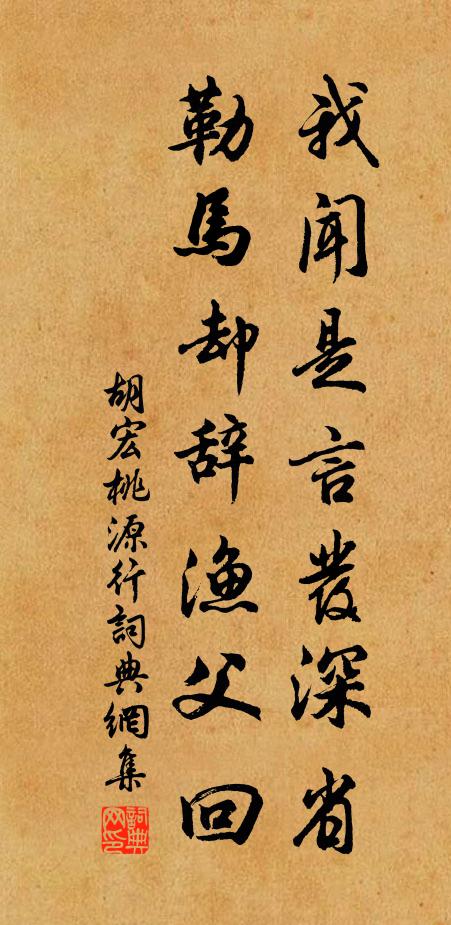 我闻是言发深省
勒馬却辞渔父回
胡宏桃源行詞典網集
詞典网印